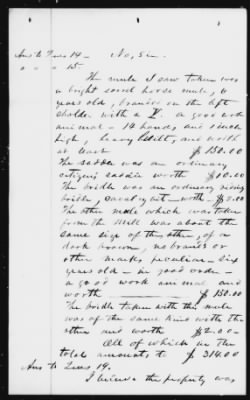 Ans to Ques 14 - No, Sir.
" " " 15 -
The mule I saw taken was
a bright sorrel horse mule, 6
years old, branded on the left
sholder with a V. a good work
animal - 14 hands and 1 inch
high, heavy built, and worth
at least $150.00
The saddle was an ordinary
citizens saddle worth $10.00
The bridle was an ordinary riding
bridle, cavalry bit - worth, $2.00
The other mule which was taken
from the mill was about the
same size of this other, of a
dark brown, no brands or
other marks peculiar - six
years old - in good order -
a good work animal and
worth $150.00
The bridle taken with this mule
was of the same kind with the
other and worth $2.00
All of which in the
total amounts to $314.00
Ans to Ques 19.
I believe the property was